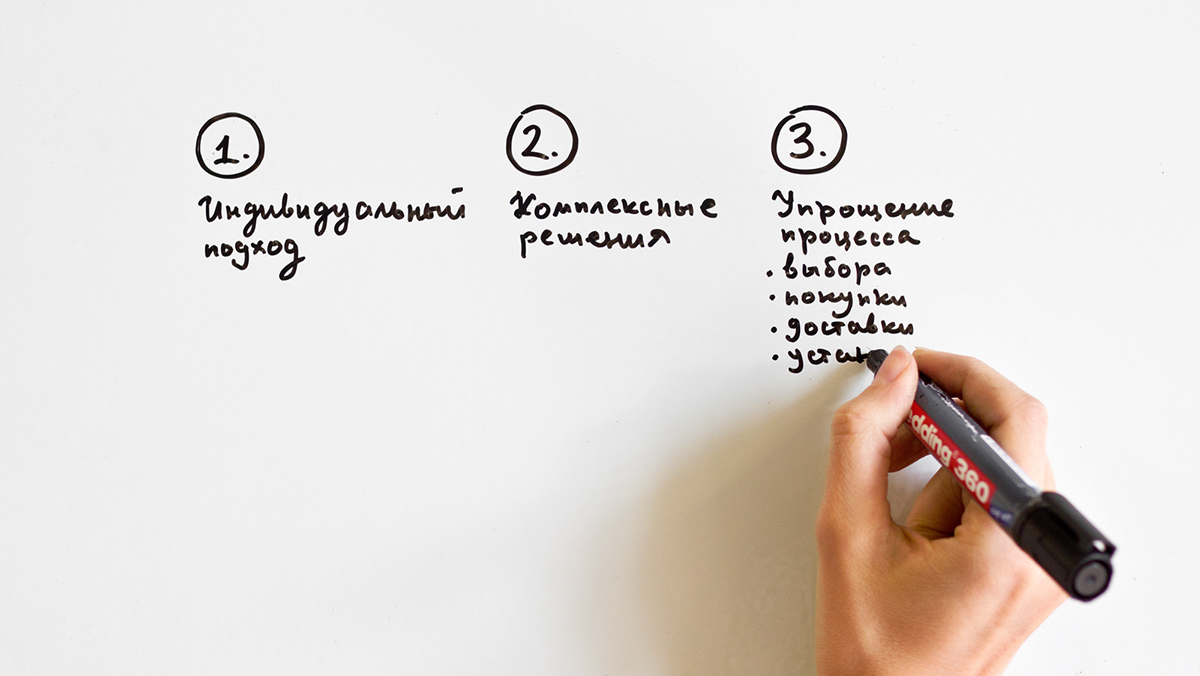 1.
Индивидуальный
подход
2.
Комплексные
решения
3.
Упрощение
процесса
• выбора
• покупки
• доставки
edding 360